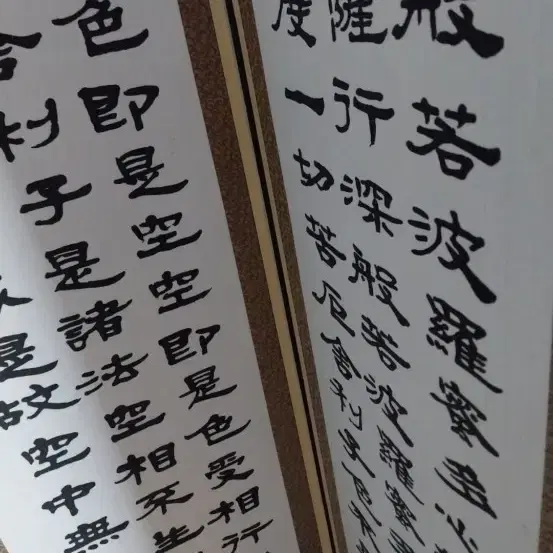 般若波羅蜜多心
薩行深般若波羅蜜多
度一切苦厄舍利子色不
色即是空空即是色受相行
舍利子是諸法空相不生
是故空中無